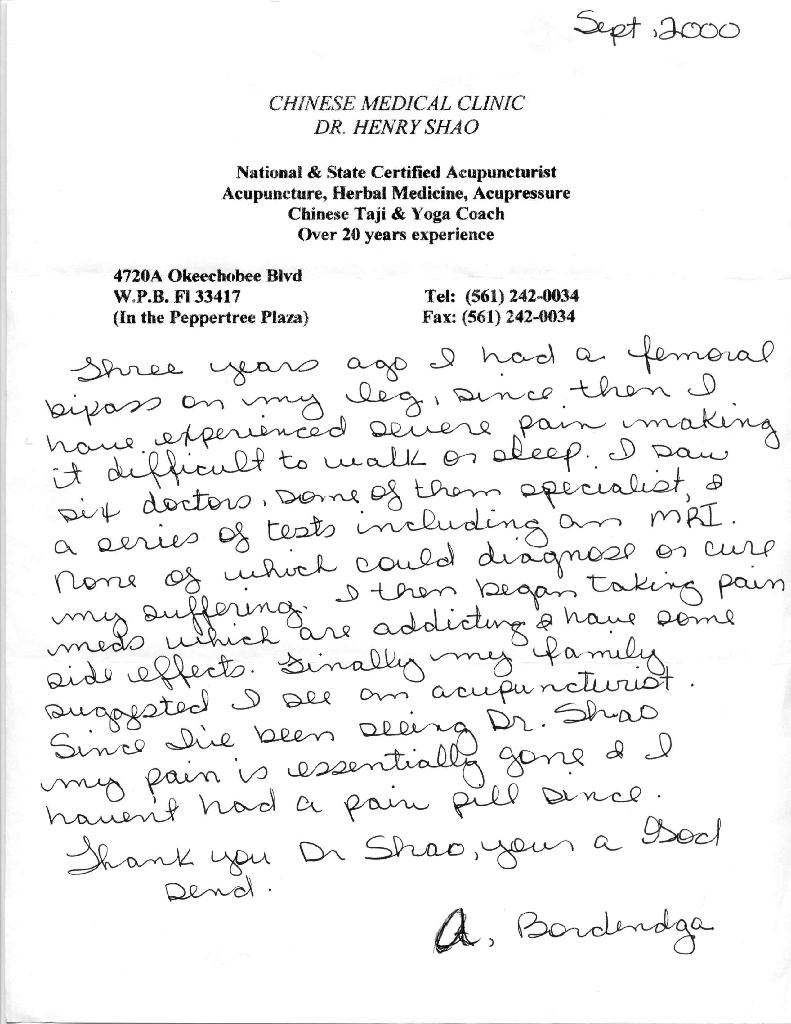 Sept, 2000
CHINESE MEDICAL CLINIC
DR. HENRY SHAO
National & State Certified Acupuncturist
Acupuncture, Herbal Medicine, Acupressure
Chinese Taji & Yoga Coach
Over 20 years experience
4720A Okeechobee Blvd
W.P.B. Fl 33417 Tel: (561) 242-0034
(In the Peppertree Plaza) Fax: (561) 242-0034
Three years ago I had a femoral
bipass on my leg, since then I
have experienced severe pain making
it difficult to walk or sleep. I saw
six doctors, some of them specialist, &
a series of tests including an MRI.
None of which could diagnose or cure
my suffering. I then began taking pain
meds which are addicting & have some
side effects. Finally my family
suggested I see an acupuncturist.
Since I've been seeing Dr. Shao
my pain is essentially gone & I
haven't had a pain pill since.
Thank you Dr Shao, your a God
send.
A. Bordendga